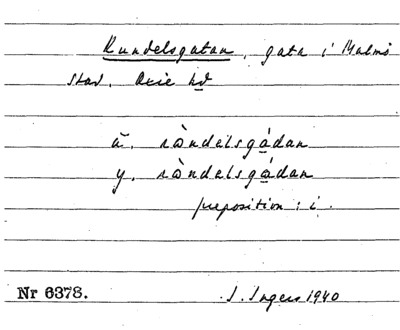 Rundelsgatan, gata i Malmö
stad. Oxie hd
ä. ràndelsgådan
y. ràndelsgådan
preposition: i.
Nr 6378. I. Ingers 1940